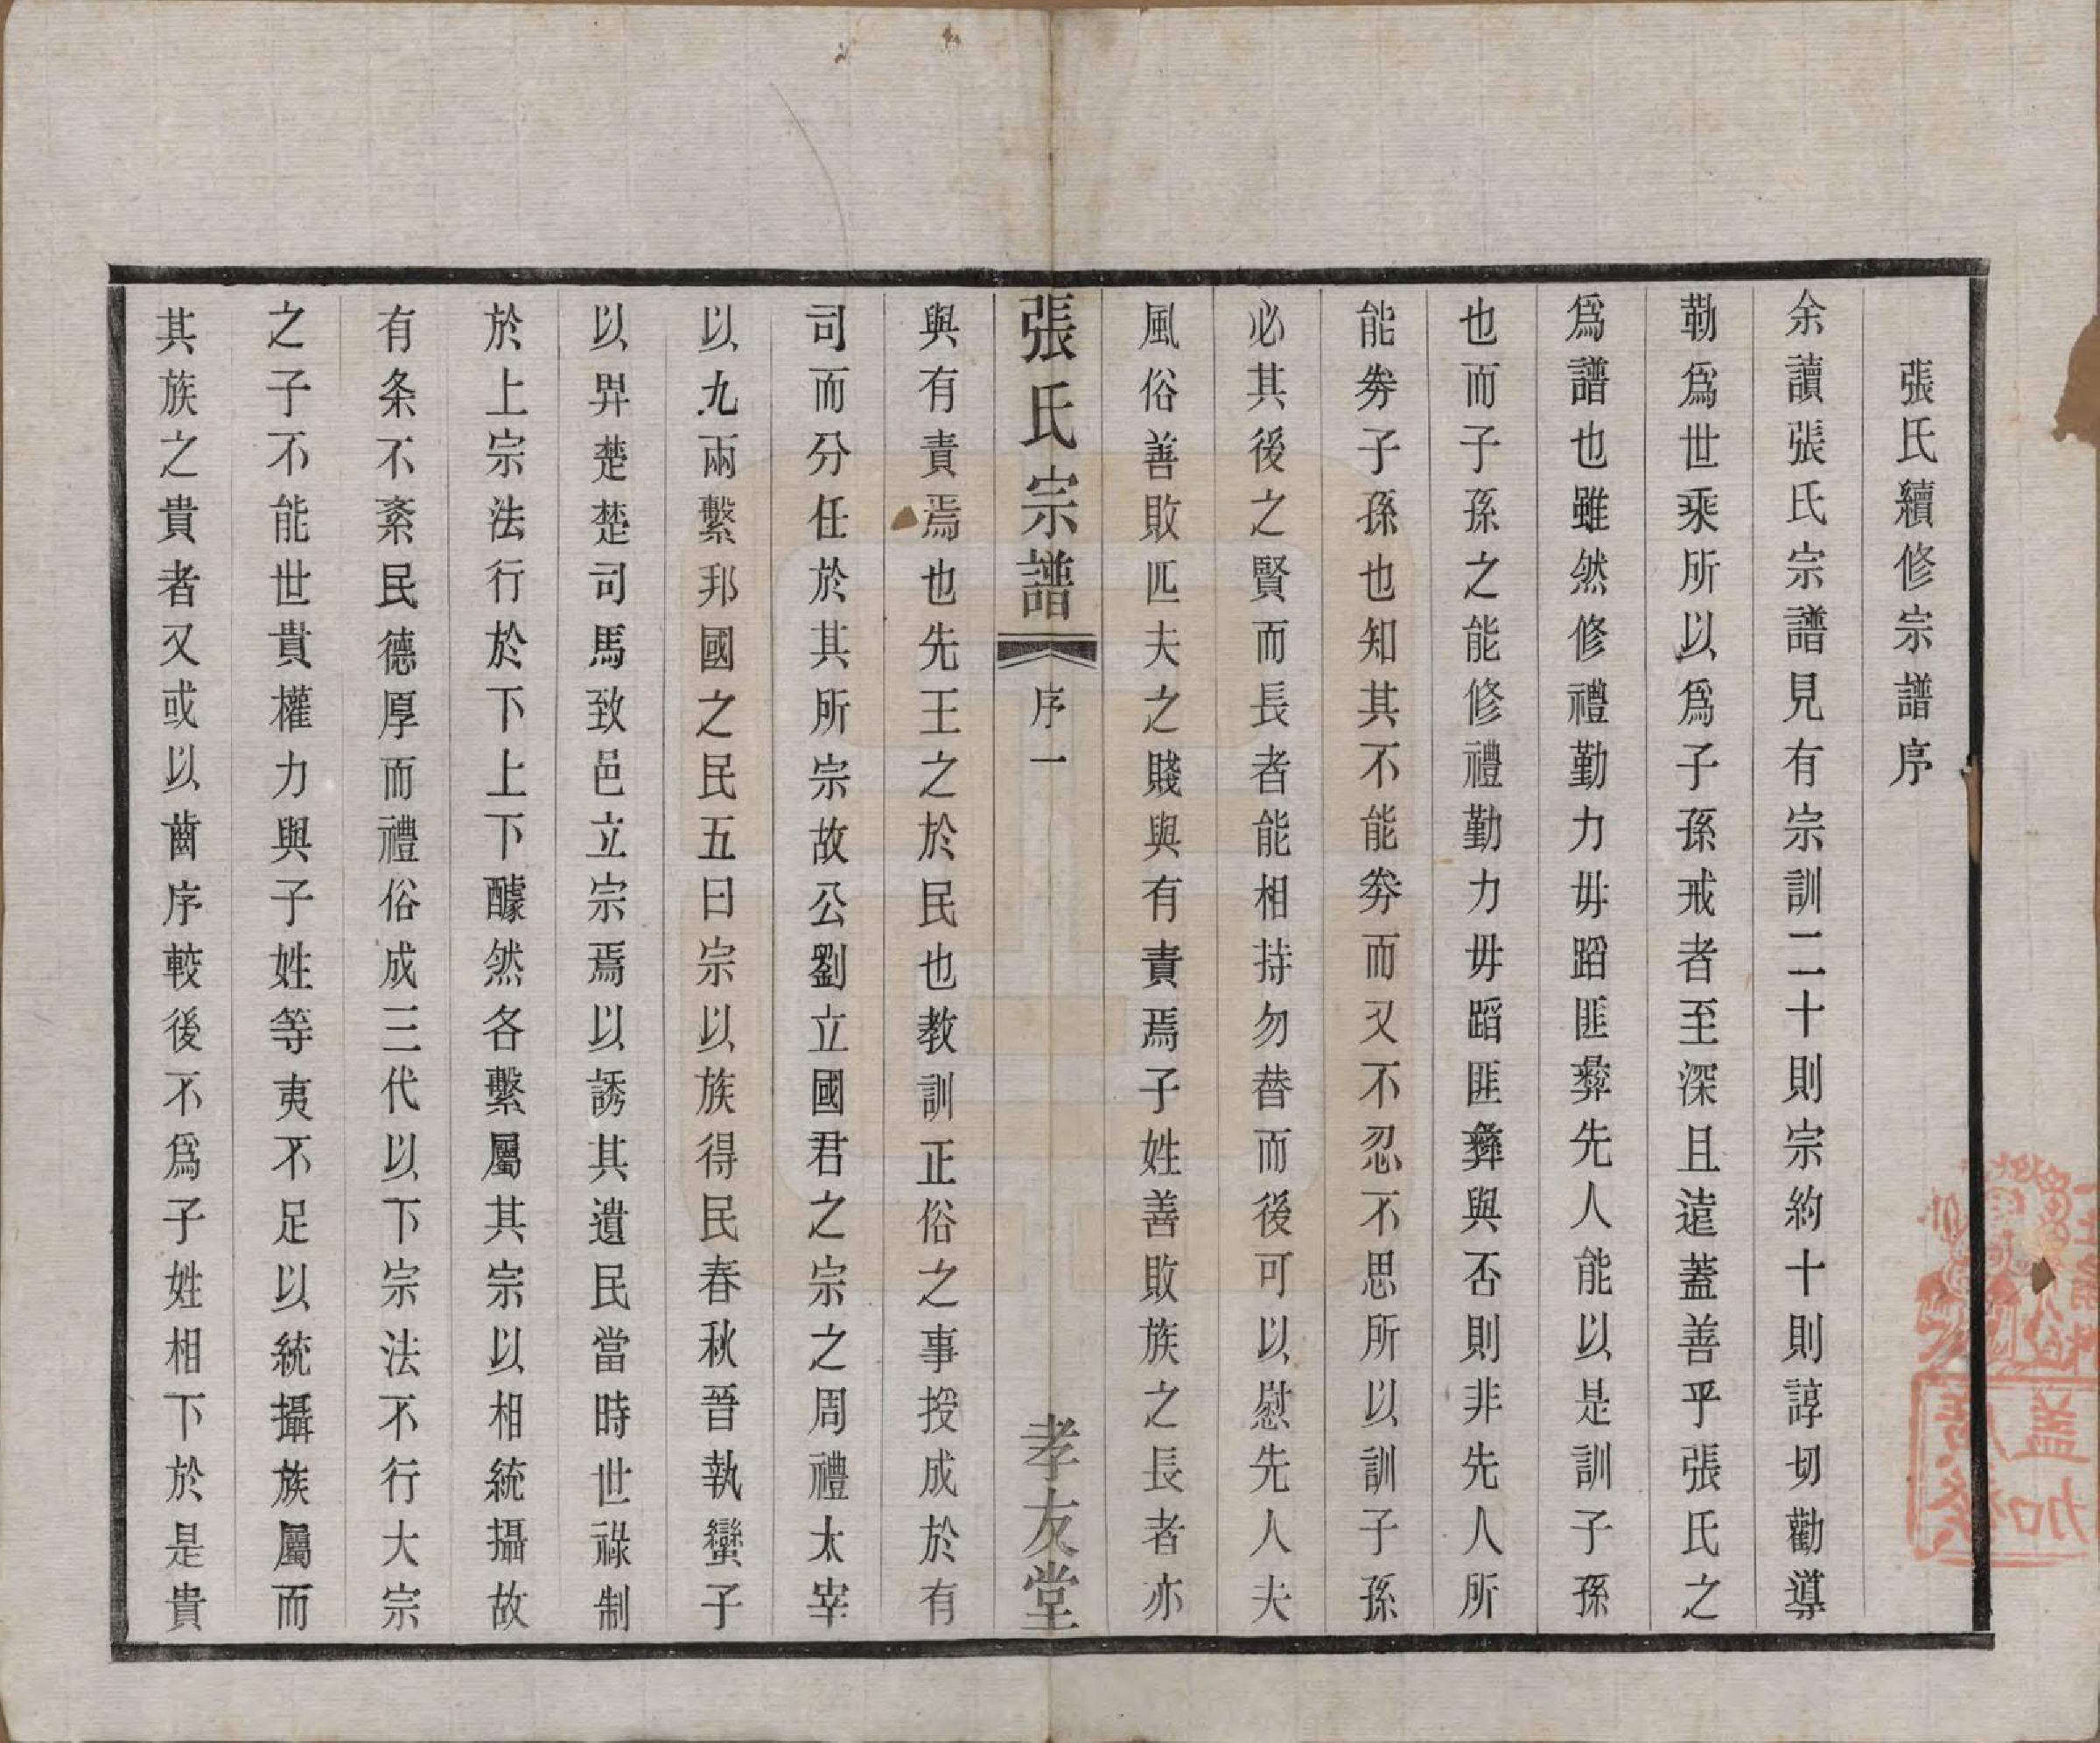 張氏續修宗譜序
余讀張氏宗譜見有宗訓二十則宗約十則諄切勸導
勒爲世乘所以爲子孫戒者至深且遠蓋善乎張氏之
爲譜也雖然修禮勤力毋蹈匪彞先人能以是訓子孫
也而子孫之能修禮勤力毋蹈匪彞與否則非先人所
能劵子孫也知其不能劵而又不忍不思所以訓子孫
必其後之賢而長者能相持勿替而後可以慰先人夫
風俗善敗匹夫之賤與有責焉子姓善敗族之長者亦
張氏宗譜 序一 孝友堂
與有責焉也先王之於民也教訓正俗之事授成於有
司而分任於其所宗故公劉立國君之宗之周禮太宰
以九兩繫邦國之民五曰宗以族得民春秋晉執蠻子
以畀楚楚司馬致邑立宗焉以誘其遺民當時世祿制
於上宗法行於下上下醵然各繫屬其宗以相統攝故
有条不紊民德厚而禮俗成三代以下宗法不行大宗
之子不能世貴權力與子姓等夷不足以統攝族屬而
其族之貴者又或以齒序較後不爲子姓相下於是貴